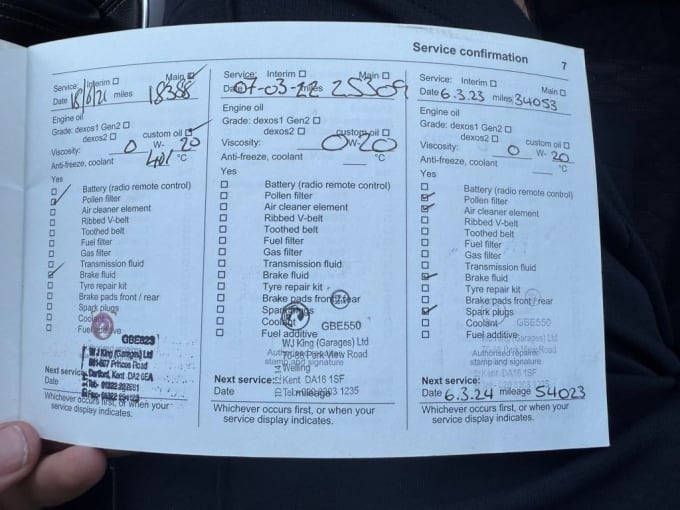 Service confirmation
7
Service: Interim ☐ Main ☑
Date 18/6/21 miles 18388
Engine oil
Grade: dexos1 Gen2 ☐
dexos2 ☐ custom oil ☑
Viscosity: 0 W- 20
Anti-freeze, coolant °C
Yes
☐ Battery (radio remote control)
☑ Pollen filter
☐ Air cleaner element
☐ Ribbed V-belt
☐ Toothed belt
☐ Fuel filter
☐ Gas filter
☐ Transmission fluid
☑ Brake fluid
☐ Tyre repair kit
☐ Brake pads front / rear
☐ Spark plugs
☐ Coolant
☐ Fuel additive
W J King (Garages) Ltd
Princes Road
Dartford, Kent DA2 6EA
Next service:
Date
Whichever occurs first, or when your
service display indicates.
Service: Interim ☐ Main ☐
Date 07-03-22 miles 25309
Engine oil
Grade: dexos1 Gen2 ☐
dexos2 ☐ custom oil ☐
Viscosity: 0 W- 20
Anti-freeze, coolant °C
Yes
☐ Battery (radio remote control)
☐ Pollen filter
☐ Air cleaner element
☐ Ribbed V-belt
☐ Toothed belt
☐ Fuel filter
☐ Gas filter
☐ Transmission fluid
☐ Brake fluid
☐ Tyre repair kit
☐ Brake pads front / rear
☐ Spark plugs
☐ Coolant
☐ Fuel additive
GBE550
WJ King (Garages) Ltd
Park View Road
stamp and signature
Welling
Kent DA16 1SF
Next service:
Date mileage
Whichever occurs first, or when your
service display indicates.
Service: Interim ☐ Main ☐
Date 6.3.23 miles 34053
Engine oil
Grade: dexos1 Gen2 ☐
dexos2 ☐ custom oil ☐
Viscosity: 0 W- 20
Anti-freeze, coolant °C
Yes
☐ Battery (radio remote control)
☑ Pollen filter
☑ Air cleaner element
☐ Ribbed V-belt
☐ Toothed belt
☐ Fuel filter
☐ Gas filter
☐ Transmission fluid
☑ Brake fluid
☐ Tyre repair kit
☐ Brake pads front / rear
☑ Spark plugs
☐ Coolant
☐ Fuel additive
GBE550
WJ King (Garages) Ltd
Authorised repairer
stamp and signature
Kent DA16 1SF
Next service:
Date 6.3.24 mileage 54023
Whichever occurs first, or when your
service display indicates.